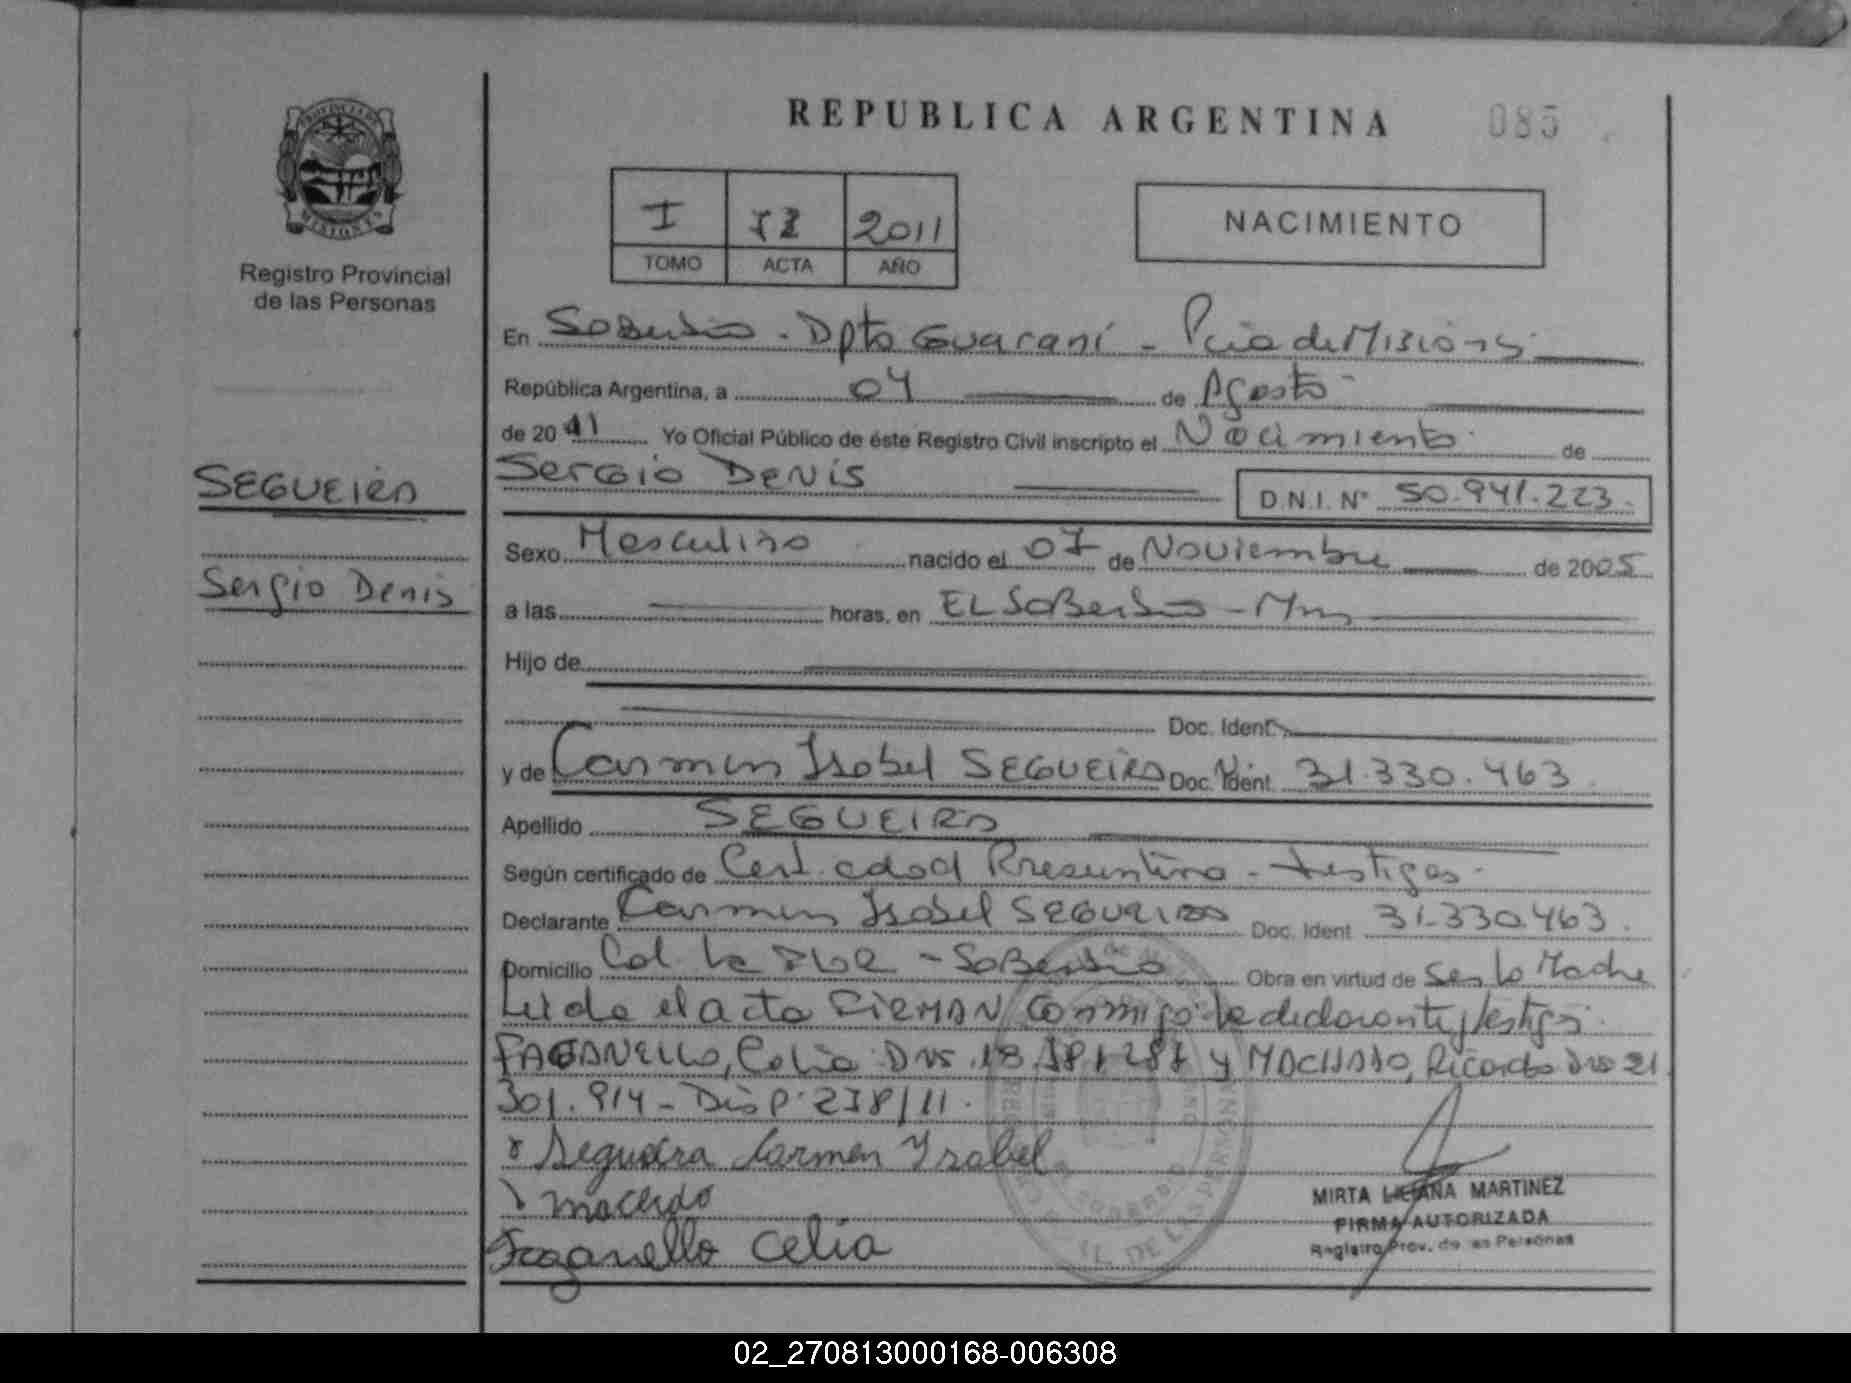 REPUBLICA ARGENTINA 085
PROVINCIA DE
MISIONES
Registro Provincial
de las Personas
I 2011
TOMO ACTA AÑO
NACIMIENTO
En Soberbio - Dpto Guaraní - Pcia de Misiones
República Argentina, a 04 de Agosto
de 2011 Yo Oficial Público de éste Registro Civil inscripto el Nacimiento de
Sergio Denis D.N.I. N° 50.941.223.
SEGUEIRA
Sergio Denis
Sexo Masculino nacido el 07 de Noviembre de 2005
a las horas, en EL Soberbio - Mnes
Hijo de
Doc. Ident.
y de Carmen Isabel SEGUEIRA Doc. Ident. 31.330.463
Apellido SEGUEIRA
Según certificado de Cert. edad Presuntiva - testigos.
Declarante Carmen Isabel SEGUEIRA Doc. Ident 31.330.463.
Domicilio Col. La - Soberbio Obra en virtud de Ser la Madre
Leida el acta FIRMAN conmigo la declarante y testigos.
FAGANELLO, Celia DNI y MACHADO, Ricardo DNI 21
301.914 - Disp. 238/11.
Segueira Carmen Ysabel
Machado
Faganello Celia
MIRTA LILIANA MARTINEZ
FIRMA AUTORIZADA
Registro Prov. de las Personas
02_270813000168-006308